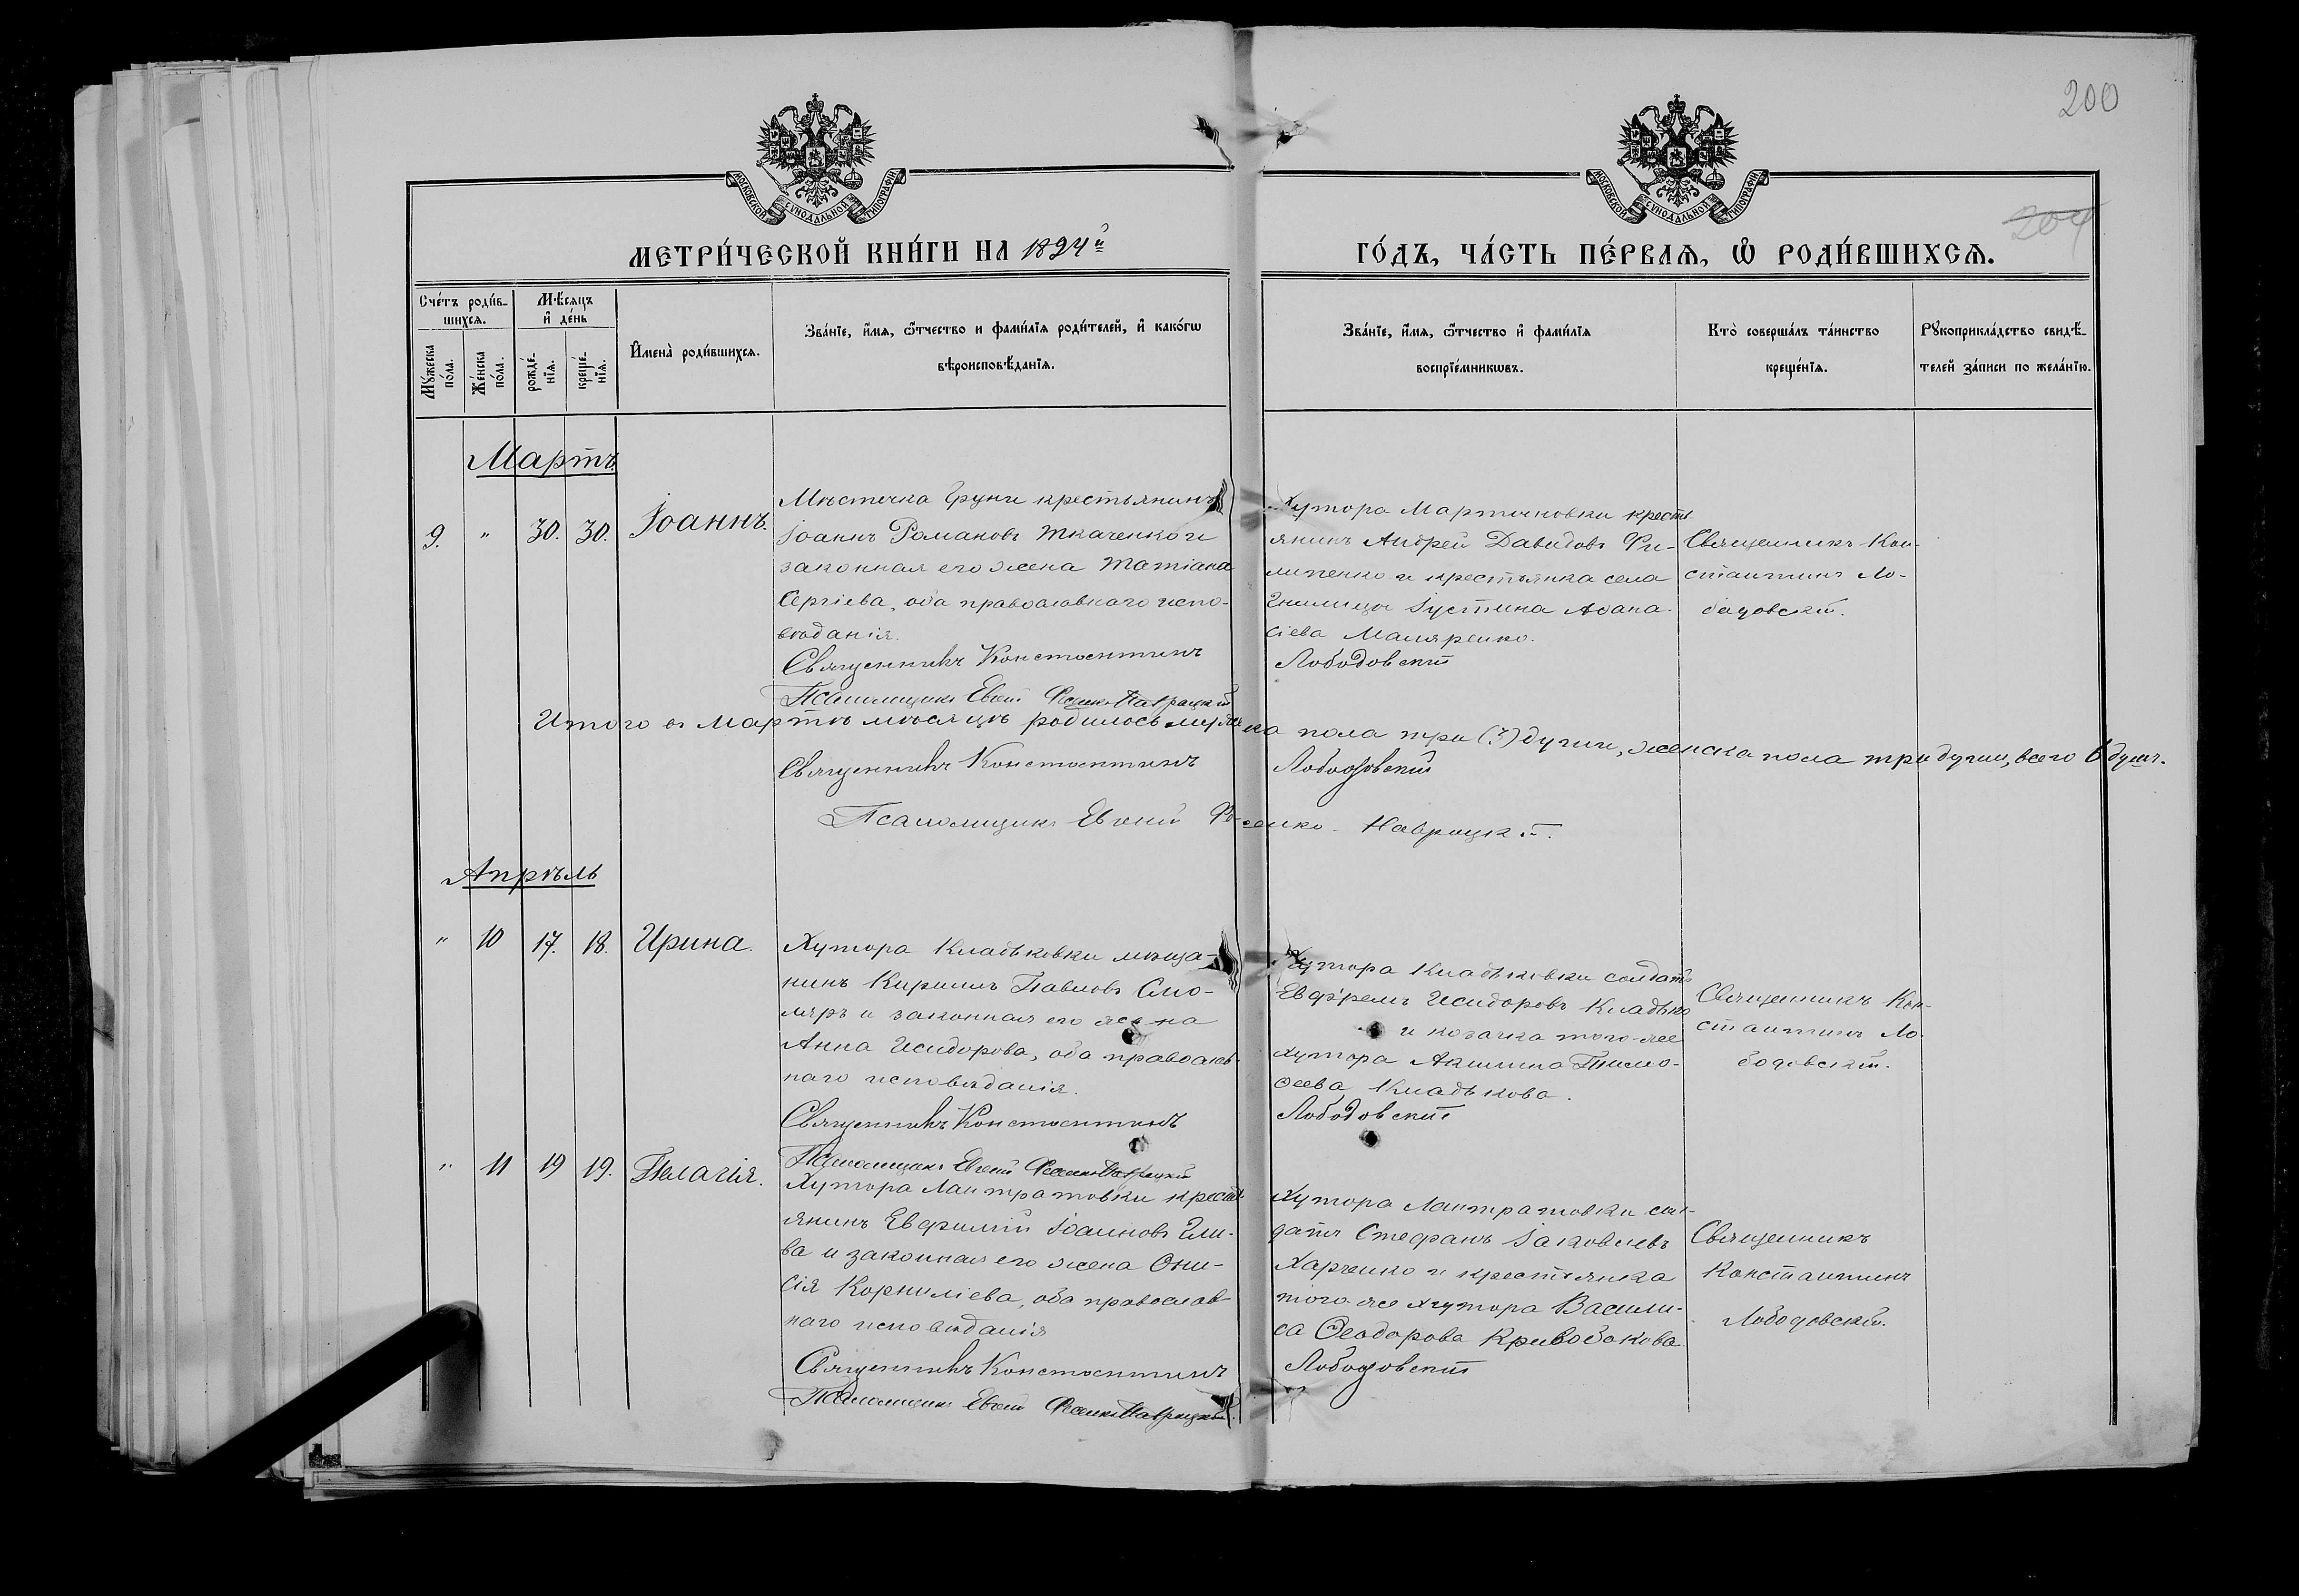 200
МОСКОВСКОЙ СѴНОДАЛЬНОЙ ТИПОГРАФІИ
МОСКОВСКОЙ СѴНОДАЛЬНОЙ ТИПОГРАФІИ
204
МЕТРИ́ЧЕСКОЙ КНИ́ГИ НА 1894й
ГО́ДЪ, ЧА́СТЬ ПЕ́РВАѦ, Ѡ҆ РОДИ́ВШИХСѦ.
Сче́тъ роди́в-
шихсѧ.
Мѣ́сѧцъ
и҆ де́нь
Мꙋ́жеска
по́ла.
Же́нска
по́ла.
рожде́-
нїѧ.
креще́-
нїѧ.
И҆мена̀ роди́вшихсѧ.
Зва́нїе, и҆́мѧ, ѻ҆́тчество и фами́лїѧ роди́телей, и҆ како́гѡ
вѣроисповѣ́данїѧ.
Зва́нїе, и҆́мѧ, ѻ҆́тчество и҆ фами́лїѧ
воспрїе́мникѡвъ.
Кто̀ соверша́лъ та́инство
креще́нїѧ.
Рꙋкоприкла́дство свидѣ́-
телей за́писи по жела́нїю.
Мартъ.
9. " 30. 30. Іоаннъ.
Мѣстечка Груни крестьянинъ
Іоаннъ Романовъ Ткаченко и
законная его жена Татіана
Сергіева, оба православнаго испо-
вѣданія.
Священникъ Константинъ
Псаломщикъ Евѳій Фесенко-Наврацкій
Хутора Мартыновки кресть-
янинъ Андрей Давидовъ Фи-
липенко и крестьянка села
Гнилицы Іустина Аѳана-
сіева Маляренко.
Лободовскій
Священникъ Кон-
стантинъ Ло-
бодовскій.
Итого въ Мартѣ мѣсяцѣ родилось мужеска пола три (3) души, женска пола три души, всего 6 душъ.
Священникъ Константинъ Лободовскій
Псаломщикъ Евѳій Фесенко-Наврацкій.
Апрѣль
" 10 17. 18. Ирина.
Хутора Кладьковки мѣща-
нинъ Кириллъ Павловъ Сто-
ляръ и законная его жена
Анна Исидорова, оба православ-
наго исповѣданія.
Священникъ Константинъ
Псаломщикъ Евѳій Фесенко-Наврацкій
Хутора Кладьковки солдатъ
Евфремъ Исидоровъ Кладько
и козачка того-же
хутора Акилина Тимо-
ѳеева Кладькова.
Лободовскій
Священникъ Кон-
стантинъ Ло-
бодовскій.
" 11 19 19. Пелагія.
Хутора Лантратовки кресть-
янинъ Евфимій Іоанновъ
ва и законная его жена Они-
сія Корниліева, оба православ-
наго исповѣданія
Священникъ Константинъ
Псаломщикъ Евѳій Фесенко-Наврацкій.
Хутора Лантратовки сол-
датъ Стефанъ Іаковлевъ
Харченко и крестьянка
того-же хутора Васили-
са Ѳеодорова Кривобокова
Лободовскій
Священникъ
Константинъ
Лободовскій.